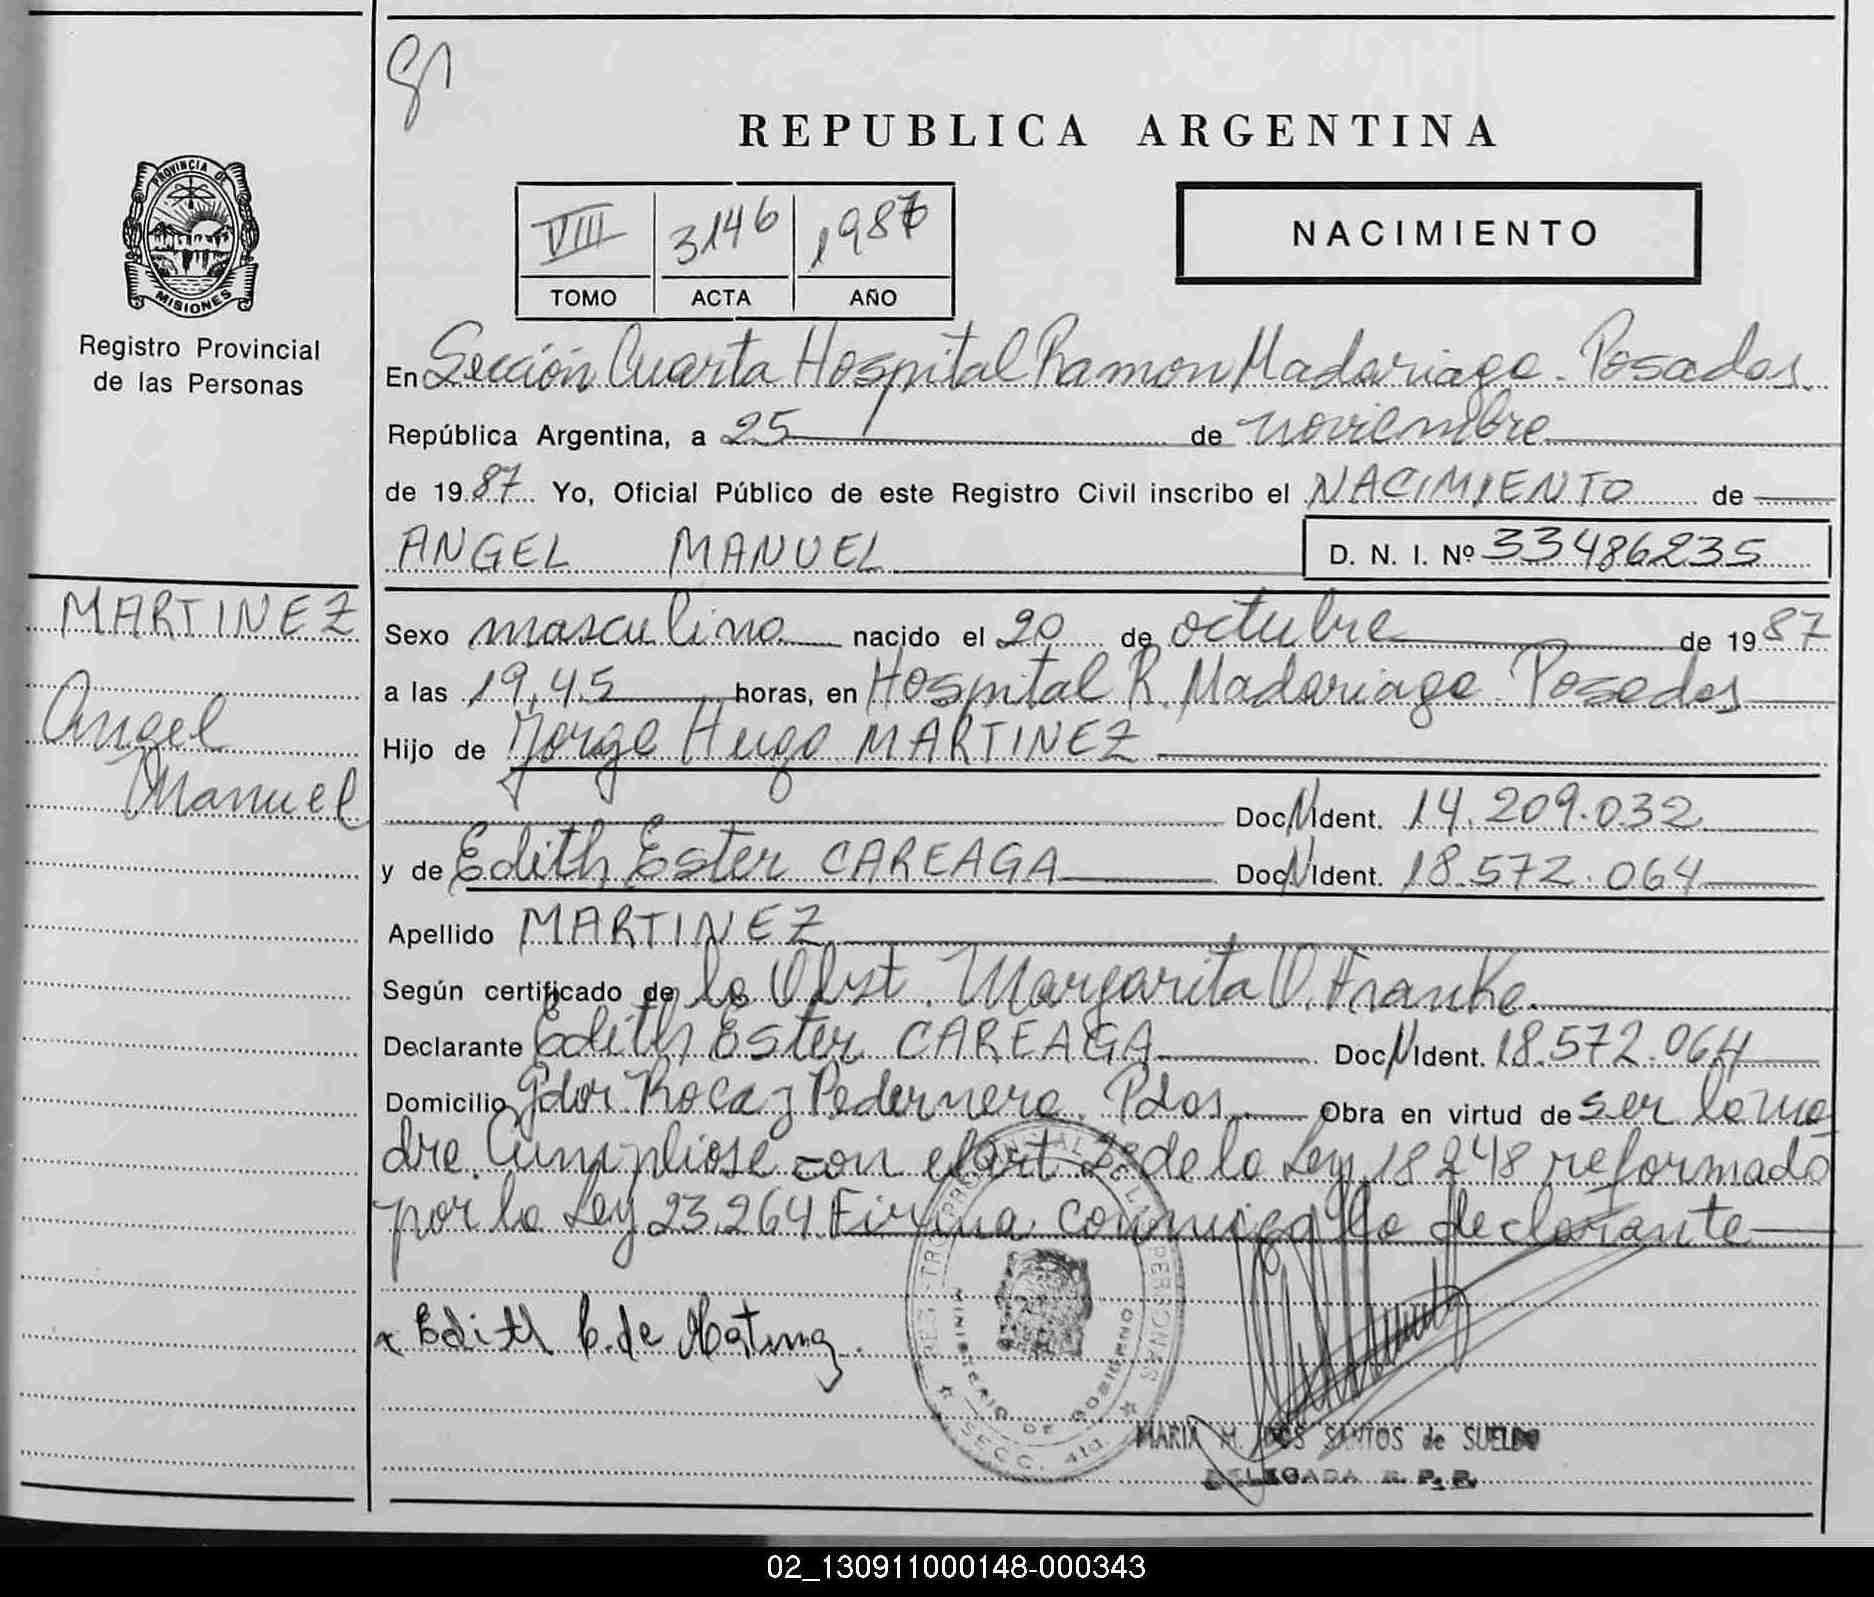 REPUBLICA ARGENTINA
PROVINCIA DE
MISIONES
Registro Provincial
de las Personas
VIII 3146 1987
TOMO ACTA AÑO
NACIMIENTO
En Sección Cuarta Hospital Ramon Madariaga. Posadas.
República Argentina, a 25 de noviembre
de 1987 Yo, Oficial Público de este Registro Civil inscribo el NACIMIENTO de
ANGEL MANUEL D. N. I. Nº 33486235
MARTINEZ
Angel
Manuel
Sexo masculino nacido el 20 de octubre de 1987
a las 19,45 horas, en Hospital R. Madariaga. Posadas
Hijo de Jorge Hugo MARTINEZ
Doc N Ident. 14.209.032
y de Edith Ester CAREAGA Doc N Ident. 18.572.064
Apellido MARTINEZ
Según certificado de la Obst. Margarita V. Franke.
Declarante Edith Ester CAREAGA Doc N Ident. 18.572.064
Domicilio Gdor Roca y Pedernera. Pdas. Obra en virtud de ser la ma
dre. Cumpliose con el art 2º de la Ley 18248 reformado
por la Ley 23.264 Firma conmigo la declarante
x Edith C. de Martinez
REGISTRO PROVINCIAL DE LAS PERSONAS
MINISTERIO DE GOBIERNO
SECC. 4ta.
MARIA M. DOS SANTOS de SUELDO
DELEGADA R. P. P.
02_130911000148-000343